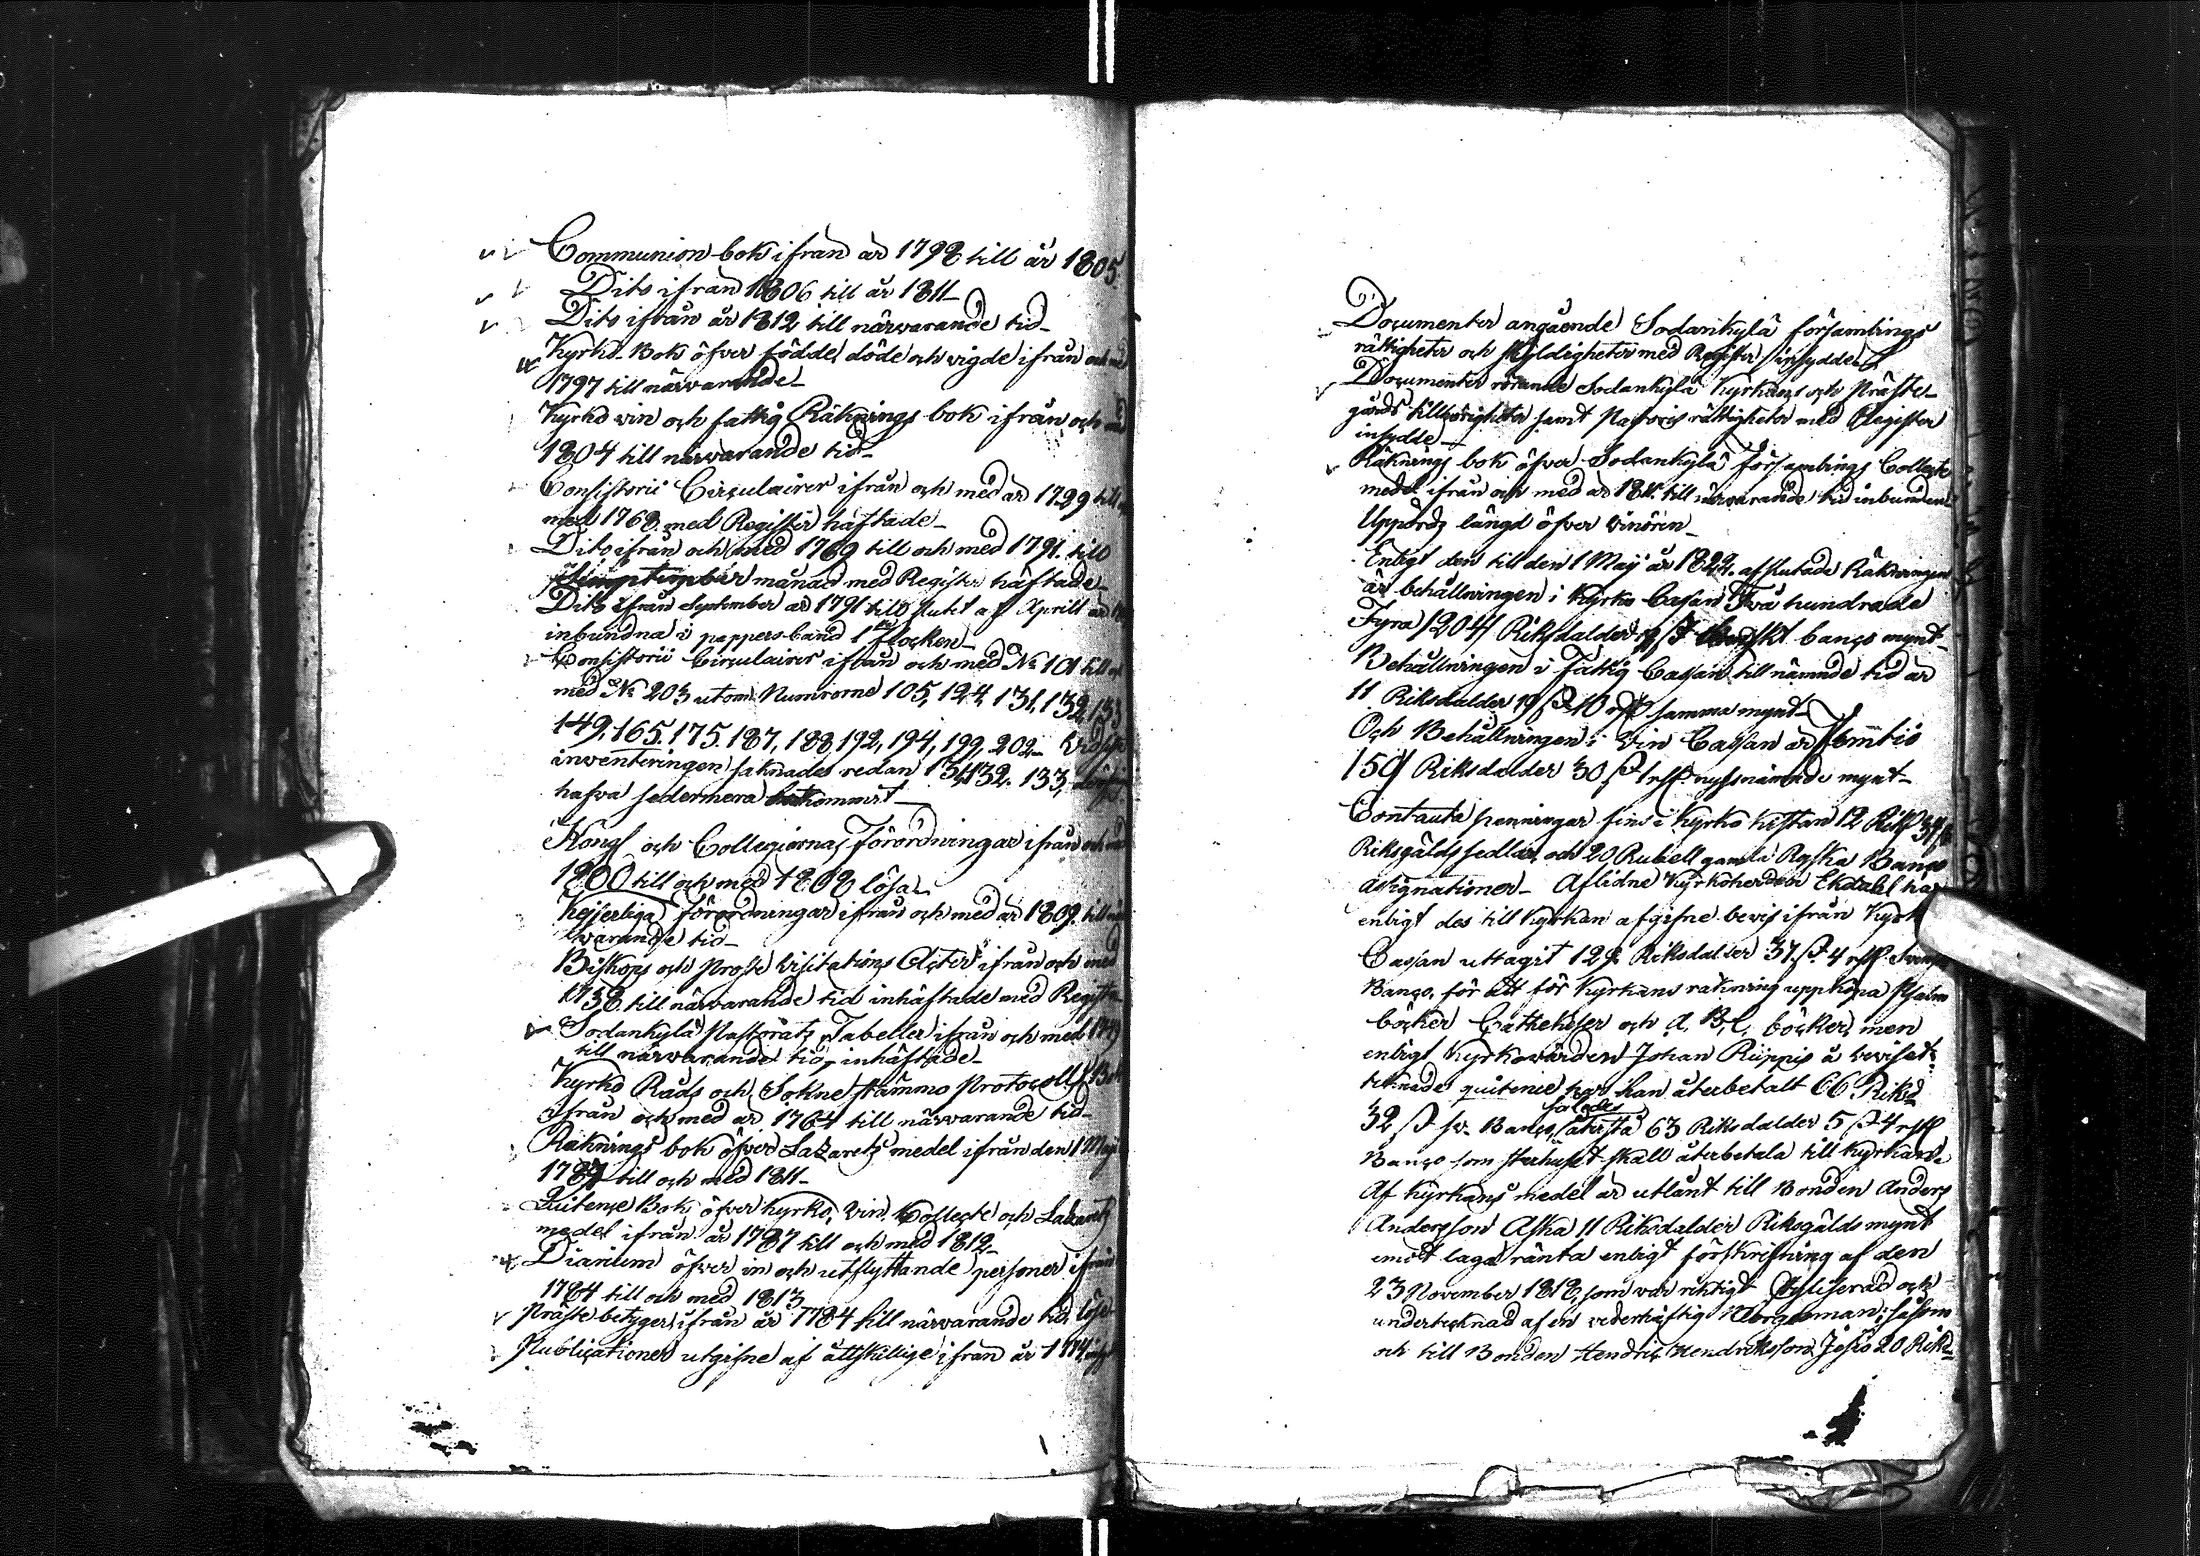 Communion bok ifrån år 1798 till år 1805
Dito ifrån 1806 till år 1811
Dito ifrån år 1812 till närwarande tid
Kyrko Bok öfver födde, döde och vigde ifrån och med
1797 till närvarande
Kyrko vin och fattig Räknings bok ifrån och med
1804 till närwarande tid
Consistorii Circulairer ifrån och med år 1729 till
med 1768 med Register häftade
Dito ifrån och med 1769 till och med 1791 till
månad med Register häftade
Dito ifrån September år 1791 till slutet af Aprill år
inbundna i pappers band
Consistorii Circulairer ifrån och med No 101 till och
med No 203 utom Numrorne 105, 124, 131, 132, 133
149, 165. 175. 187, 188, 192, 194, 199. 202
inventeringen saknades redan 131, 132. 133,
hafva sedermera
Kongl och Collegiernas Förordningar ifrån och med
1800 till och med 1808 lösa
Kejserliga förordningar ifrån och med år 1809. till när
warande tid
Biskops och Proste Visitations Acter ifrån och med
1738 till närvarande tid inhäftade med Register
Sodankylä Pastorats Tabeller ifrån och med
till närvarande tid, inhäftade
Kyrko Råds och Sokne stämmo Protocolls Bok
ifrån och med år 1764 till närwarande tid
Räknings bok öfver Lazaretz medel ifrån den 1 Maji
1787 till och med 1811
Quitense Bok öfver Kyrko, Vin, Collecte och Lazaretz
medel ifrån år 1787 till och med 1812
Diarium öfver in och utflyttande personer ifrån
1784 till och med 1813
Präste betyger ifrån år 1784 till närvarande tid, lösa
Publicationer utgifne af åttskillige ifrån år
Documenter angående Sodankylä församlings
rättigheter och skyldigheter med Register insydde
Documenter rörande Sodankylä Kyrkans och Präste
gårds tillhörigheter samt Pastoris rättigheter med Register
insydde
Räknings bok öfver Sodankylä församlings Collecte
medel ifrån och med år 1811. till närvarande tid inbunden
Uppbörds längd öfver vinören
Enligt den till den 1 Maji år 1822. afslutade Räkningen
är behållningen i Kyrko Cassan Två hundrade
Fyra /204/ Riksdaler banco mynt
Behållningen i Fattig Cassan till nämnde tid är
11 Riksdaler 19 ß 10 samma mynt
Och Behållningen i Vin Cassan är Femtio
/50/ Riksdaler 30 ß nyssnämnde mynt
Contanta penningar fins i Kyrko kistan 12
Riksgälds sedlar, och 20 Rubell gamla Ryska Banco
assignationer Aflidne Kyrkoherden Ekdahl har
enligt des till Kyrkan afgifne bevis ifrån Kyrko
Cassan uttagit 129 Riksdaler 37 ß. 4
Banco, för att för Kyrkans räkning uppköpa Psalm
böcker Catheheser och A, B, C, böcker, men
enligt Kyrkowärden Johan Riippis å beviset
teknade quitence har han återbetalt 66 Riksd
32 ß sv. Banco, således återstå 63 Riksdaler 5 ß 4
Banco som Sterbhuset skall återbetala till Kyrkan
Af Kyrkans medel är utlånt till Bonden Anders
Andersson Aska 11 Riksdaler Riksgälds mynt
emot laga ränta enligt förskrifning af den
23 November 1818, som var riktigt och
undertecknad af en vederhäftig Borgesman; såsom
och till Bonden Hendric Hendriksson Jesiö 20 Riks